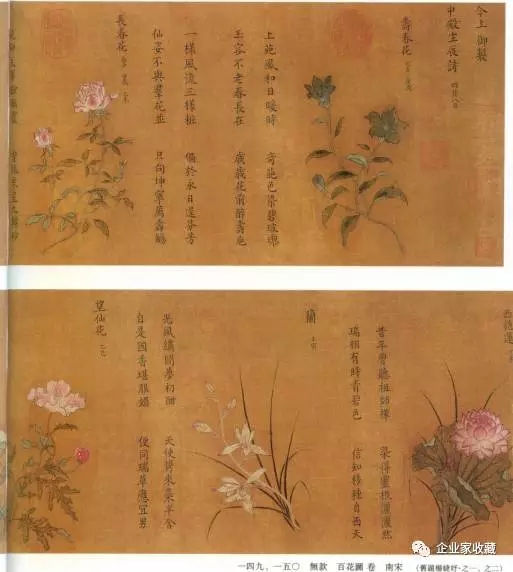 今上御製
中殿生辰詩 四月八日
壽春花
上苑風和日暖時 奇葩色染碧玻瓈
玉容不老春長在 歲歲花前醉壽卮
長春花
一樣風流三樣粧 偏於永日逞芬芳
仙姿不與羣花並 只向坤寧薦壽觴
昔年曾聽祖師禪 染得靈根灑灑然
瑞相有時青碧色 信知移種自西天
蘭
光風繡閣夢初酣 天使携來葉半含
自是國香堪服媚 便同瑞草應宜男
望仙花
一四九，一五〇 無款 百花圖 卷 南宋 （舊題楊婕妤·之一，之二）
企业家收藏